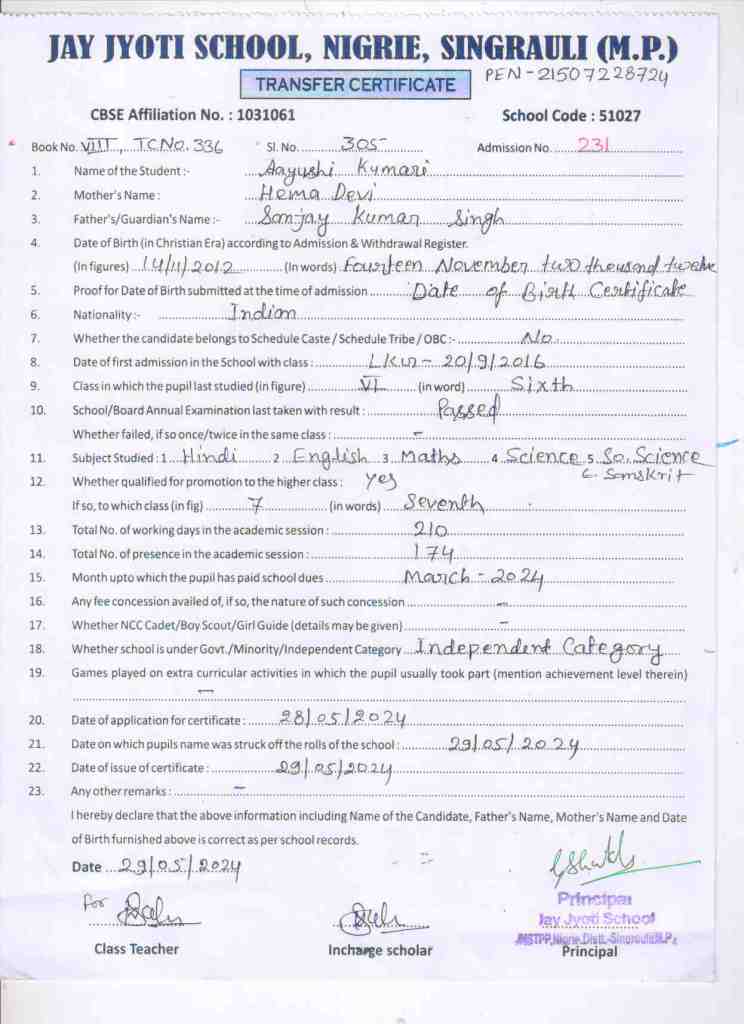 JAY JYOTI SCHOOL, NIGRIE, SINGRAULI (M.P.)
TRANSFER CERTIFICATE PEN - 21507228724
CBSE Affiliation No. : 1031061 School Code : 51027
Book No. VIII, TC No. 336 Sl. No. 305 Admission No. 231
1. Name of the Student :- Aayushi Kumari
2. Mother's Name : Hema Devi
3. Father's/Guardian's Name :- Sanjay Kumar Singh
4. Date of Birth (in Christian Era) according to Admission & Withdrawal Register.
(In figures) 14/11/2012 (In words) Fourteen November two thousand twelve
5. Proof for Date of Birth submitted at the time of admission Date of Birth Certificate
6. Nationality :- Indian
7. Whether the candidate belongs to Schedule Caste / Schedule Tribe / OBC :- No
8. Date of first admission in the School with class : LKG - 20/9/2016
9. Class in which the pupil last studied (in figure) VI (in word) Sixth
10. School/Board Annual Examination last taken with result : Passed
Whether failed, if so once/twice in the same class : -
11. Subject Studied : 1 Hindi 2 English 3 Maths 4 Science 5 So. Science
6. Samskrit
12. Whether qualified for promotion to the higher class : Yes
If so, to which class (in fig) 7 (in words) Seventh
13. Total No. of working days in the academic session : 210
14. Total No. of presence in the academic session : 174
15. Month upto which the pupil has paid school dues March - 2024
16. Any fee concession availed of, if so, the nature of such concession -
17. Whether NCC Cadet/Boy Scout/Girl Guide (details may be given) -
18. Whether school is under Govt./Minority/Independent Category Independent Category
19. Games played on extra curricular activities in which the pupil usually took part (mention achievement level therein)
-
20. Date of application for certificate : 28/05/2024
21. Date on which pupils name was struck off the rolls of the school : 29/05/2024
22. Date of issue of certificate : 29/05/2024
23. Any other remarks : -
I hereby declare that the above information including Name of the Candidate, Father's Name, Mother's Name and Date
of Birth furnished above is correct as per school records.
Date 29/05/2024
For
Principal
Jay Jyoti School
JNSTPP, Nigrie, Distt.-Singrauli M.P.
Class Teacher Incharge scholar Principal